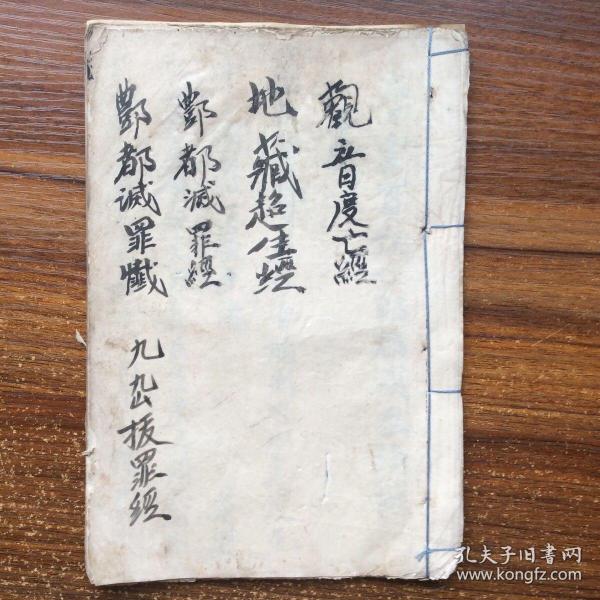 觀音度亡經
地藏超生經
酆都滅罪經
酆都滅罪懺
九幽拔罪經
孔夫子旧书网
www.kongfz.com